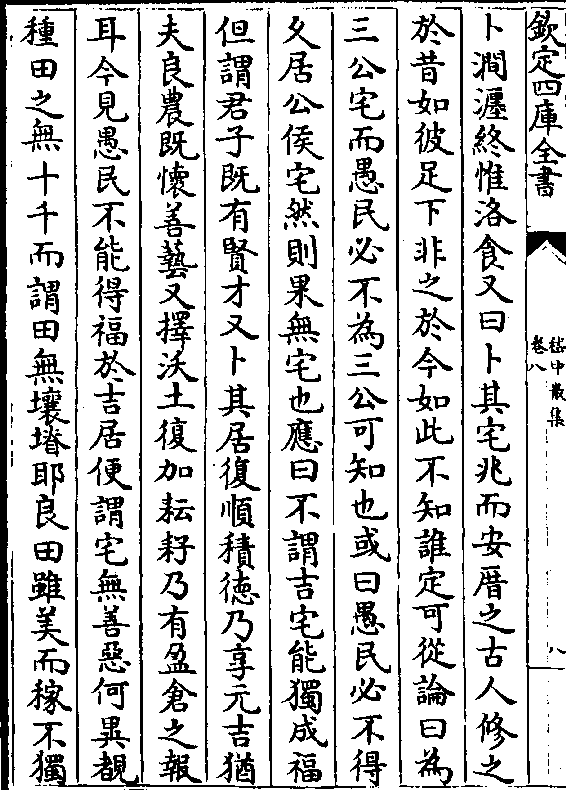 欽定四庫全書
嵇中散集
卷八
八
卜澗瀍終惟洛食又曰卜其宅兆而安厝之古人修之
於昔如彼足下非之於今如此不知誰定可從論曰為
三公宅而愚民必不為三公可知也或曰愚民必不得
久居公侯宅然則果無宅也應曰不謂吉宅能獨成福
但謂君子既有賢才又卜其居復順積徳乃享元吉猶
夫良農既懷善藝又擇沃土復加耘耔乃有盈倉之報
耳今見愚民不能得福於吉居便謂宅無善惡何異覩
種田之無十千而謂田無壤塉耶良田雖美而稼不獨